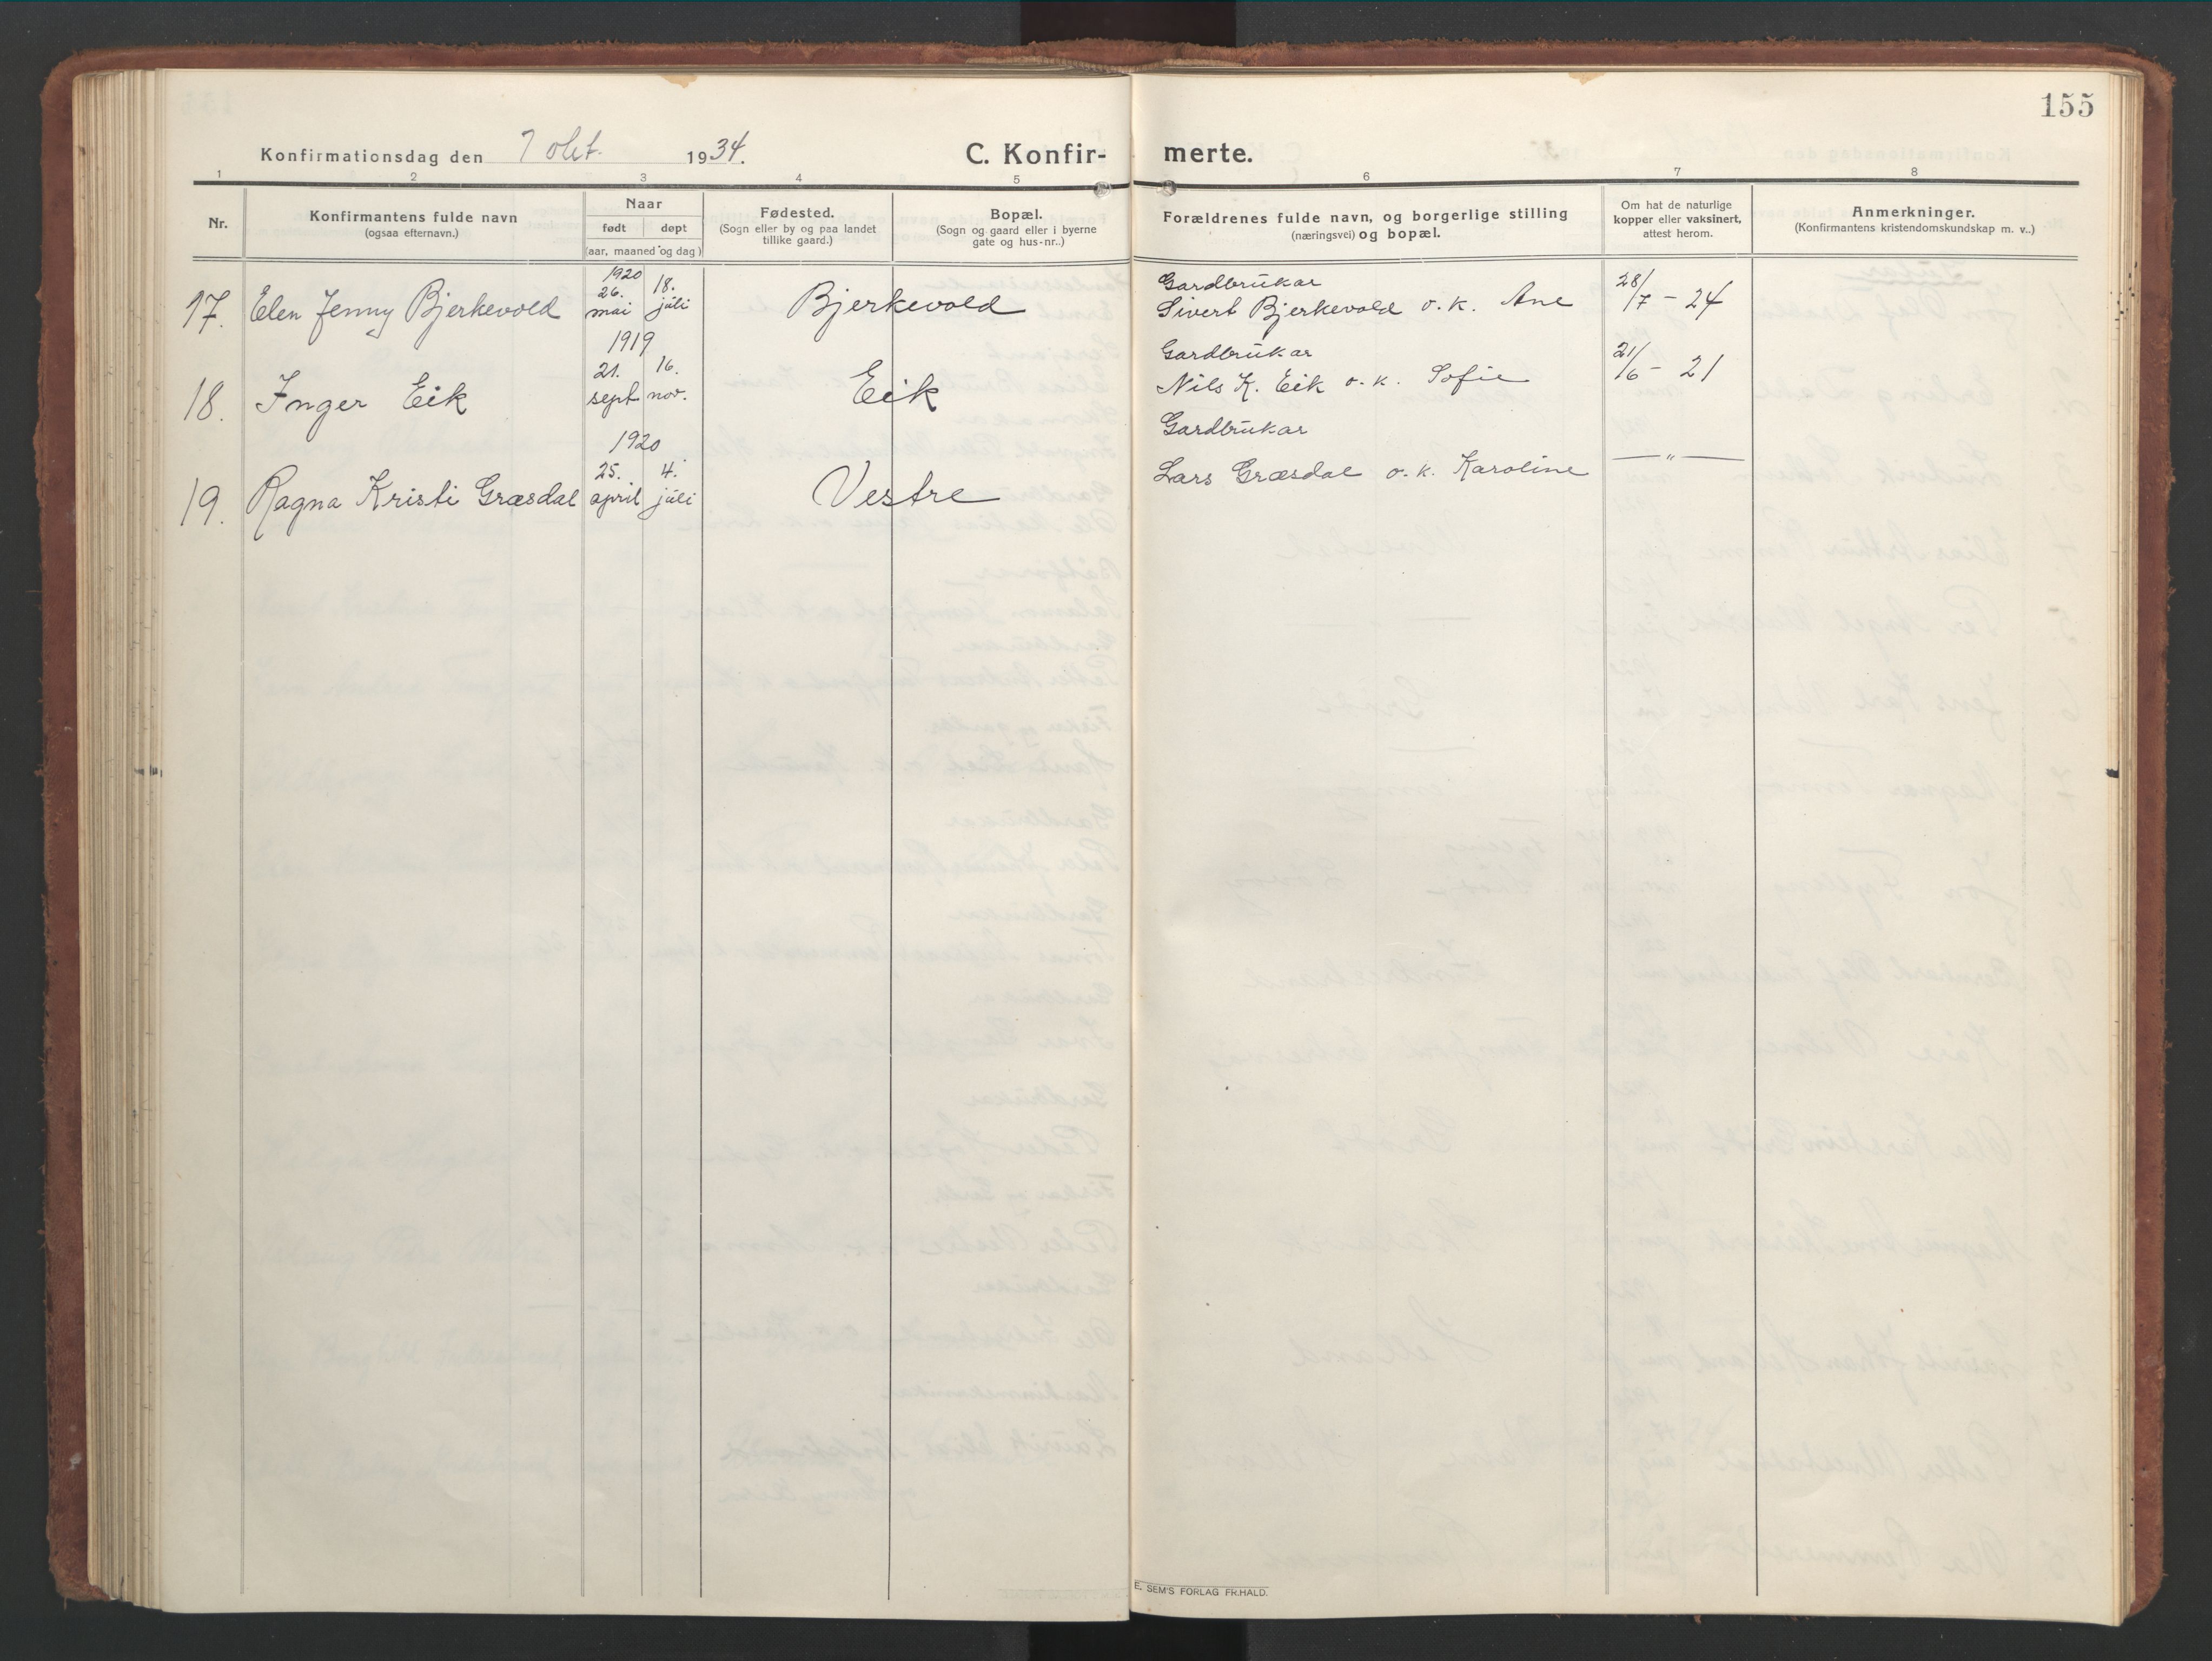 155
Konfirmationsdag den 7 okt. 1934.
C. Konfir- merte.
1 2 3 4 5 6 7 8
Nr.
Konfirmantens fulde navn
(ogsaa efternavn.)
Naar
født døpt
(aar, maaned og dag)
Fødested.
(Sogn eller by og paa landet
tillike gaard.)
Bopæl.
(Sogn og gaard eller i byerne
gate og hus-nr..)
Forældrenes fulde navn, og borgerlige stilling
(næringsvei) og bopæl.
Om hat de naturlige
kopper eller vaksinert,
attest herom.
Anmerkninger.
(Konfirmantens kristendomskundskap m. v..)
1920
26. 18. Gardbrukar 28/7 - 24
17. Elen Jenny Bjerkevold mai juli Bjerkevold Sivert Bjerkevold o. k. Ane
1919
21. 16. Gardbrukar 21/6 - 21
18. Inger Eik sept nov. Eik Nils K. Eik o. k. Sofie
1920 Gardbrukar
25. 4. Lars Græsdal o. k. Karoline — " —
19. Ragna Kristi Græsdal april juli Vestre
E. SEM'S FORLAG FR.HALD.